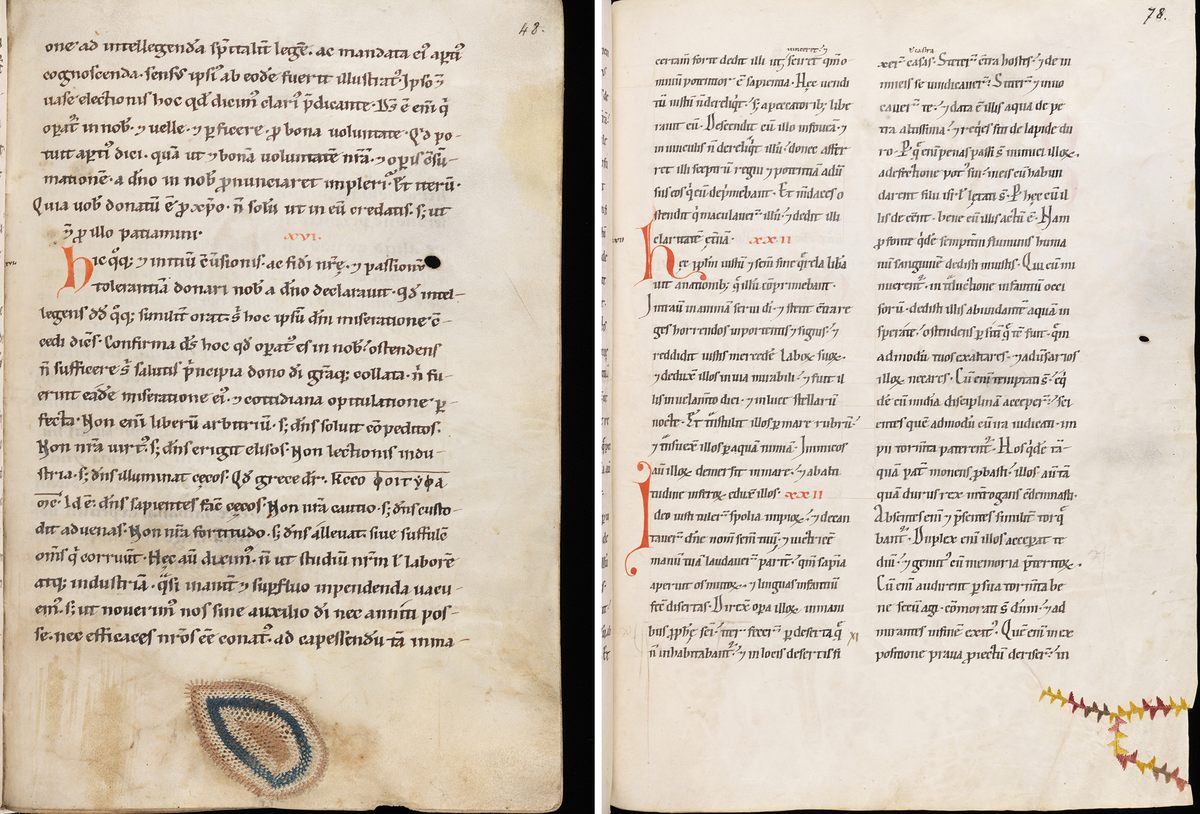 48.
one ad intellegenda sp̄italiū legē. ac mandata ei᷒ ap̄ti᷒
cognoscenda. sensus ipsi᷒ ab eodē fuerit illustrat᷒. Ipso ⁊
uase electionis hoc qđ dicim᷒ clari᷒ p̄dicante. D̄s ē eni q̄
opat᷒ in nob᷒. ⁊ uelle. ⁊ ꝑficere. ꝓ bona uoluntate. Qđ po-
tuit aꝑti᷒ dici. quā ut ⁊ bonā uoluntatē nr̄ā. ⁊ opis c̄su-
mationē. a dn̄o in nob᷒ ꝓnunciaret impleri. Et iterū.
Quia uob᷒ donatū ē ꝓ xp̄o. n̄ solū ut in eū credatis. s; ut
⁊ ꝓ illo patiamini. xvi.
hic q̇q; ⁊ initiū c̄uersionis. ac fidi nr̄ę. ⁊ passionū
tolerantiā donari nob᷒ a dn̄o declarauit. Qđ intel-
legens dđ q̇q; similit᷒ orat. s̄ hoc ipsū dn̄i miseratione c̄-
cedi diēs. Confirma d̄s hoc qđ opat᷒ es in nob᷒. ostendens
n̄ sufficere s̄ salutis p̄ncipia dono di gr̄aq; collata. n̄ fu-
erint eadē miseratione ei᷒. ⁊ cottidiana opitulatione ꝑ-
fecta. Non eni liberū arbitriū. s; dn̄s soluit cōpeditos.
Non nr̄a uirt᷒. s; dn̄s erigit elisos. Non lectionis indu-
stria. s; dn̄s illuminat cęcos. Qđ grece dr̄.
Id ē. dn̄s sapientes facit cęcos. Non nr̄a cautio. s; dn̄s custo-
dit aduenas. Non nr̄a fortitudo. s; dn̄s alleuat. siue suffulc̄
om̄s q̄ corruunt. Hęc aū dixim᷒. n̄ ut studiū nr̄m ł laborē
atq; industriā. q̄si inanit᷒ ⁊ supfluo inpendenda uacu-
em᷒. s; ut nouerim᷒ nos sine auxilio di nec anniti pos-
se. nec efficaces nr̄os eē conat᷒. ad capessendū tā inma-
78.
certam̄ forte dedit illi ut uinceret ⁊ sciret qm̄ o
mniū potentior ē sapientia. Hęc uendi
tū iustū n̄ dereliq̄t. s; a peccatorib; libe
rauit eū. Descendit cū illo in foueā. ⁊
in uinculis n̄ dereliq̄t illū. donec affer
ret illi sceptrū regni ⁊ potentiā adū
sus eos q̄ eū dep̄mebant. Et mdaces o
stendit q̄ maculauer̄ illū. ⁊ dedit illi
claritatē ęt̄nā. xxii
hęc pplm iustū ⁊ sem̄ sine q̄rela libɑ
uit a nationib; q̄ illū cōprimebant.
Intrauit in animā serui di. ⁊ stetit c̄tra re
ges horrendos in portentis ⁊ signis. ⁊
reddidit iustis mercedē laborū suoꝝ.
⁊ deduxit illos in uia mirabili. ⁊ fuit il
lis in uelamto diei. ⁊ in luce stellarū
nocte. Et t̄nstulit illos ꝑ mare rubrū.
⁊ t̄nsuexit illos ꝑ aquā nimiā. Inimicos
aū illoꝝ demersit in mare. ⁊ ab alti
tudine inferoꝝ eduxit illos. xxii
Ideo iusti tuler̄ spolia impioꝝ. ⁊ decan
tauer̄ dn̄e nom̄ sc̄m tuū. ⁊ uictricē
manū tuā laudauer̄ parit᷒. qm̄ sapīa
aperuit os mutoꝝ. ⁊ linguas infantiū
fecit disertas. Direxit opa illoꝝ in man
ib; pph̄ę sc̄i. Iter fecer̄ ꝑ deserta q̄
n̄ inhabitabant᷒. ⁊ in locis desertis fi
xer̄ casas. Steter̄ c̄tra hostes. ⁊ de in
imicis se uindicauer̄. Sitier̄ ⁊ inuo
cauer̄ te. ⁊ data ē illis aqua de pe
tra altissima. ⁊ req̇es sitis de lapide du
ro. P q̄ eni penas passi s̄ inimici illoꝝ.
a defectione pot᷒ sui. in eis cū habun
darent filii isrł lętati s̄. P hęc cū il
lis deēēnt. bene cū illis actū ē. Nam
ꝓ fonte q̇dē sempitni fluminis huma
nū sanguinē dedisti iniustis. Qui cū mi
nuerent᷒. in t̄ductione infantiū occi
sorū. dedisti illis abundantē aquā in
sperate. ostendens ꝑ sitī q̄ tc̄ fuit. qm̄
admodū tuos exaltares. ⁊ adu̅sarios
illoꝝ necares. Cū eni temptati s̄. ⁊ q̇
dē cū mīdia disciplinā acceper̄. sci
entes quē admodū cū ira iudicati im
pii tormta paterent᷒. Hos q̇dē tā-
quā pat᷒ monens ꝓbasti. illos aū tā
quā durus rex int̄rogans c̄demnasti.
Absentes eni ⁊ p̄sentes similit᷒ torq̄
bant᷒. Duplex eni illos acceperat tę
diū. ⁊ gemit᷒ cū memoria p̄teritoꝝ.
Cū eni audirent ꝑ sua tormta be
ne secū agi. cōmorati s̄ dn̄m. ⁊ ad
mirantes in finē exit᷒. Quē eni in ex
positione praua ꝓiectū deriser̄. in